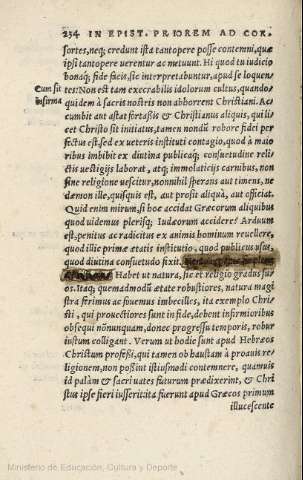 234 IN EPIST. PRIOREM AD COR.
sortes, neq; credunt ista tantopere posse contemni, quæ
ipsi tantopere uerentur ac metuunt. Hi quod tu iudicio
bonaq; fide facis, sic interpretabuntur, apud se loquen-
Cum sit infirma
tes: Non est tam execrabilis idolorum cultus, quando-
quidem à sacris nostris non abhorrent Christiani. Ac
cumbit aut astat fortassis & Christianus aliquis, qui li-
cet Christo sit initiatus, tamen nondū robore fidei per
fectus est, sed ex ueteris instituti contagio, quod à maio
ribus imbibit ex diutina publicaq; consuetudine reli-
ctis uestigijs laborat, atq; immolaticijs carnibus, non
sine religione uescitur, nonnihil sperans aut timens, ne
dæmon ille, quisquis est, aut prosit aliquà, aut officiat.
Quid enim mirum, si hoc accidat Græcorum aliquibus
quod uidemus plerisq; Iudæorum accidere? Arduum
est, penitus ac radicitus ex animis hominum reuellere,
quod illic primæ ætatis institutio, quod publicus usus,
quod diutina consuetudo fixit.
Habet ut natura, sic et religio gradus su
os. Itaq; quemadmodū ætate robustiores, natura magi
stra ferimus ac fouemus imbecilles, ita exemplo Chri-
sti, qui prouectiores sunt in fide, debent infirmioribus
obsequi nōnunquam, donec progressu temporis, robur
iustum colligant. Verum ut hodie sunt apud Hebræos
Christum professi, qui tamen ob haustam à proauis re-
ligionem, non possint istiusmodi contemnere, quamuis
id palàm & sacri uates futurum prædixerint, & Chri
stus ipse fieri iusserit: ita fuerunt apud Græcos primum
illucescente
Ministerio de Educación, Cultura y Deporte